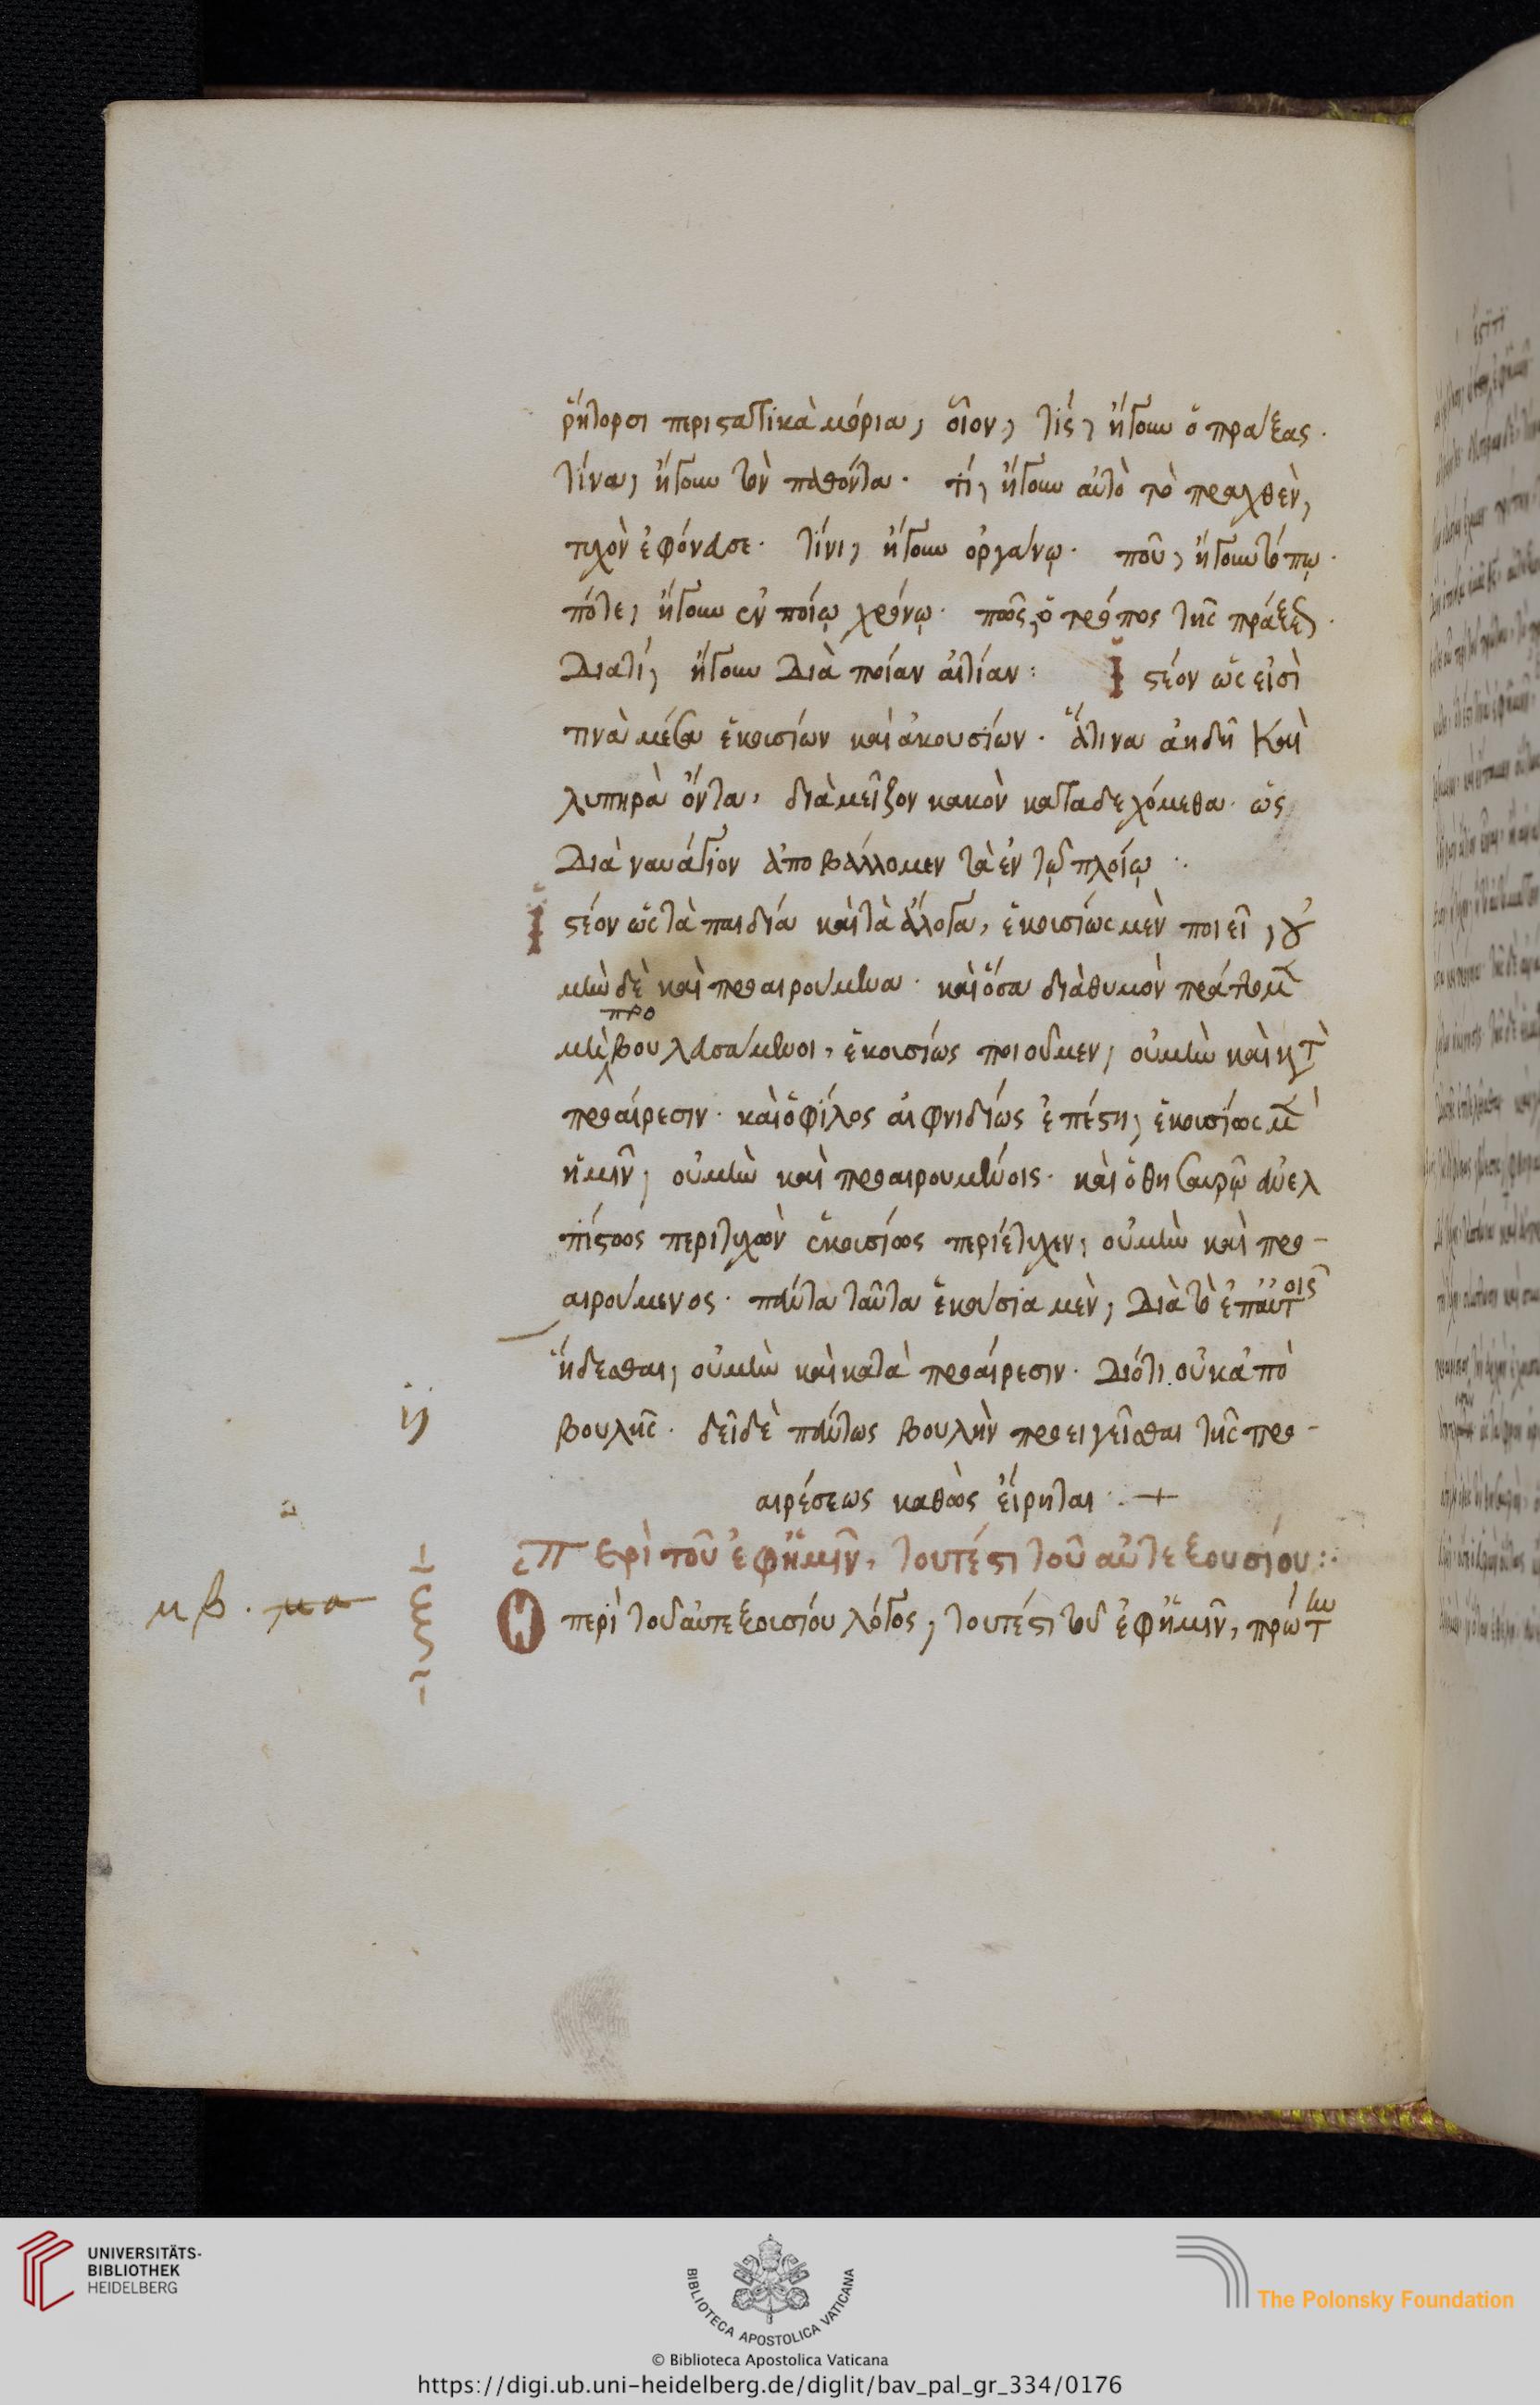 ῥήτορσι περιστατικὰ μόρια, οἷον, τίς, ἤγουν ὁ πράξας.
τίνα, ἤγουν τὸν παθόντα. τί, ἤγουν αὐτὸ τὸ πραχθὲν,
τυχὸν ἐφόνευσε. τίνι, ἤγουν ὀργάνῳ. ποῦ, ἤγουν τόπῳ.
πότε, ἤγουν ἐν ποίῳ χρόνῳ. πῶς, ὁ τρόπος τῆς πράξεως.
διατί, ἤγουν διὰ ποίαν αἰτίαν: Ἰστέον ὡς εἰσὶ
τινὰ μέσα ἑκουσίων καὶ ἀκουσίων. ἅτινα ἀηδῆ καὶ
λυπηρὰ ὄντα, διὰ μεῖζον κακὸν καταδεχόμεθα. ὡς
διὰ ναυάγιον ἀποβάλλομεν τὰ ἐν τῷ πλοίῳ.
Ἰστέον ὡς τὰ παιδία καὶ τὰ ἄλογα, ἑκουσίως μὲν ποιεῖ, οὐ
μὴν δὲ καὶ προαιρούμενα. καὶ ὅσα διὰ θυμὸν πράττομεν
μὴ προβουλευσάμενοι, ἑκουσίως ποιοῦμεν, οὐ μὴν καὶ κατὰ
προαίρεσιν. καὶ ὁ φίλος αἰφνιδίως ἐπέστη, ἑκουσίως μὲν
ἡμῖν, οὐ μὴν καὶ προαιρουμένοις. καὶ ὁ θησαυρῷ ἀνελ
πίστως περιτυχὼν ἑκουσίως περιέτυχεν, οὐ μὴν καὶ προ-
αιρούμενος. πάντα ταῦτα ἑκούσια μὲν, διὰ τὸ ἐπ' αὐτοῖς
ἥδεσθαι, οὐ μὴν καὶ κατὰ προαίρεσιν. διότι οὐκ ἀπὸ
βουλῆς. δεῖ δὲ πάντως βουλὴν προηγεῖσθαι τῆς προ-
αιρέσεως καθὼς εἴρηται. +
Περὶ τοῦ ἐφ' ἡμῖν, τουτέστι τοῦ αὐτεξουσίου:
Ὁ περὶ τοῦ αὐτεξουσίου λόγος, τουτέστι τοῦ ἐφ' ἡμῖν, πρώτην
μβ. μα
UNIVERSITÄTS-
BIBLIOTHEK
HEIDELBERG
BIBLIOTECA APOSTOLICA VATICANA
The Polonsky Foundation
© Biblioteca Apostolica Vaticana
https://digi.ub.uni-heidelberg.de/diglit/bav_pal_gr_334/0176